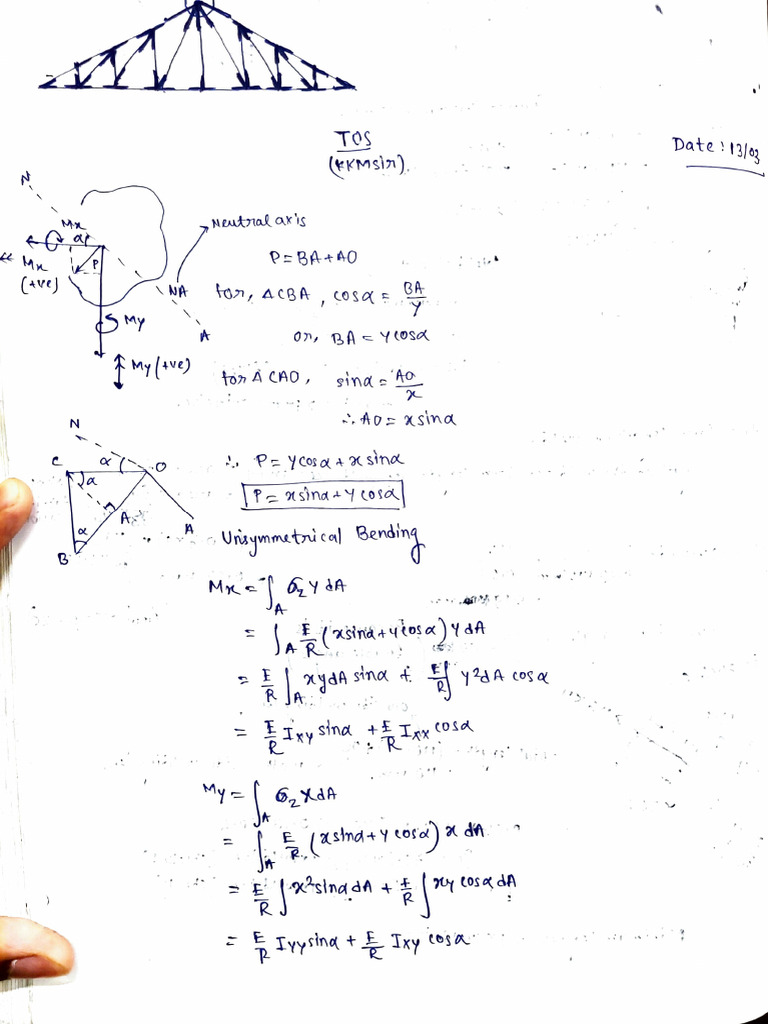 TOS
(KKMsir)
Date: 13/03
N
Mx
α
Mx
(+ve)
P
NA
My
A
My (+ve)
Neutral axis
P = BA + AO
for, ΔCBA, cosα = BA/y
or, BA = ycosα
for ΔCAO, sinα = AO/x
∴ AO = xsinα
N
C
α
O
α
A
α
B
A
∴ P = ycosα + xsinα
P = xsinα + ycosα
Unsymmetrical Bending
Mx = ∫_A σz y dA
= ∫_A E/R (xsinα + ycosα) y dA
= E/R ∫_A xydA sinα + E/R ∫ y²dA cosα
= E/R Ixy sinα + E/R Ixx cosα
My = ∫_A σz x dA
= ∫_A E/R (xsinα + ycosα) x dA
= E/R ∫ x² sinα dA + E/R ∫ xy cosα dA
= E/R Iyy sinα + E/R Ixy cosα